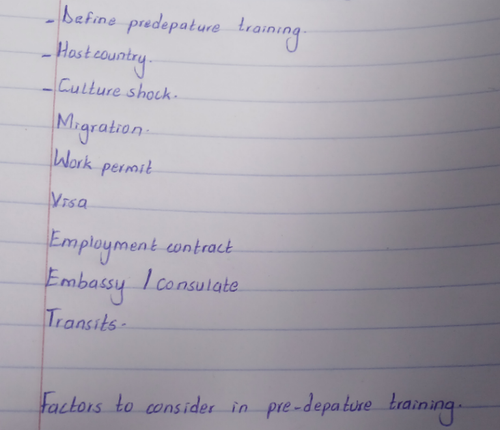 - Define predepature training.
- Host country.
- Culture shock.
Migration.
Work permit
Visa
Employment contract
Embassy / consulate
Transits.
Factors to consider in pre-depature training.